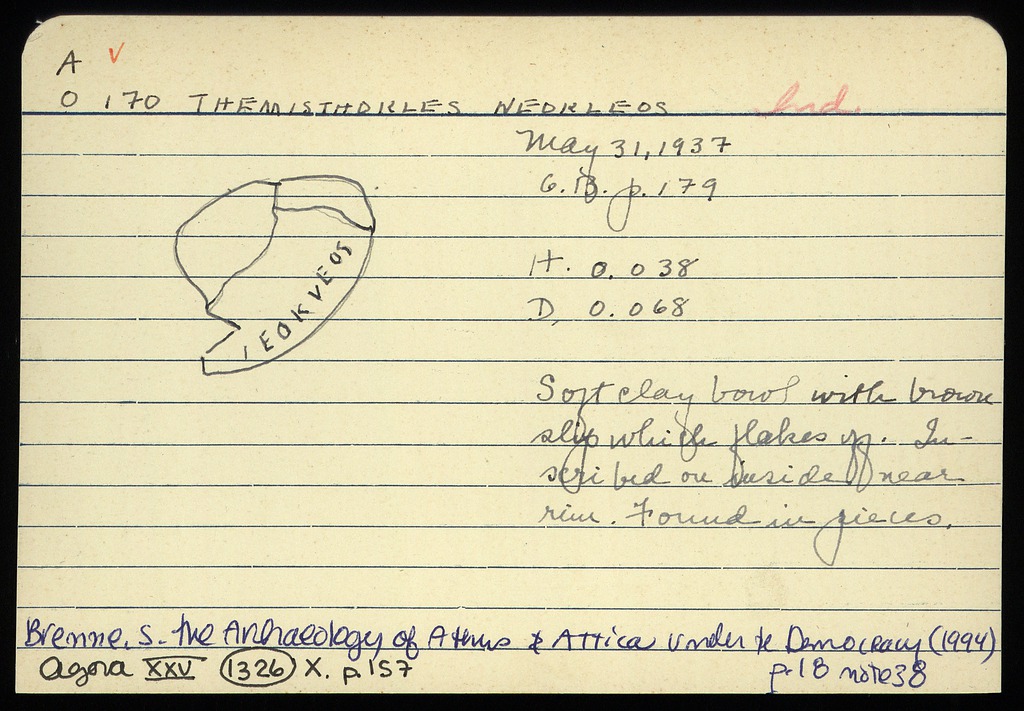 A V
O 170 THEMISTHOKLES NEOKLEOS Ind.
May 31, 1937
G.B. p. 179
H. 0.038
D. 0.068
IEOKVEOS
Soft clay bowl with brown
slip which flakes off. In-
scribed on inside near
rim. Found in pieces.
Brenne, S. The Archaeology of Athens & Attica Under the Democracy (1994)
p. 18 note 38
Agora XXV 1326 X. p. 157